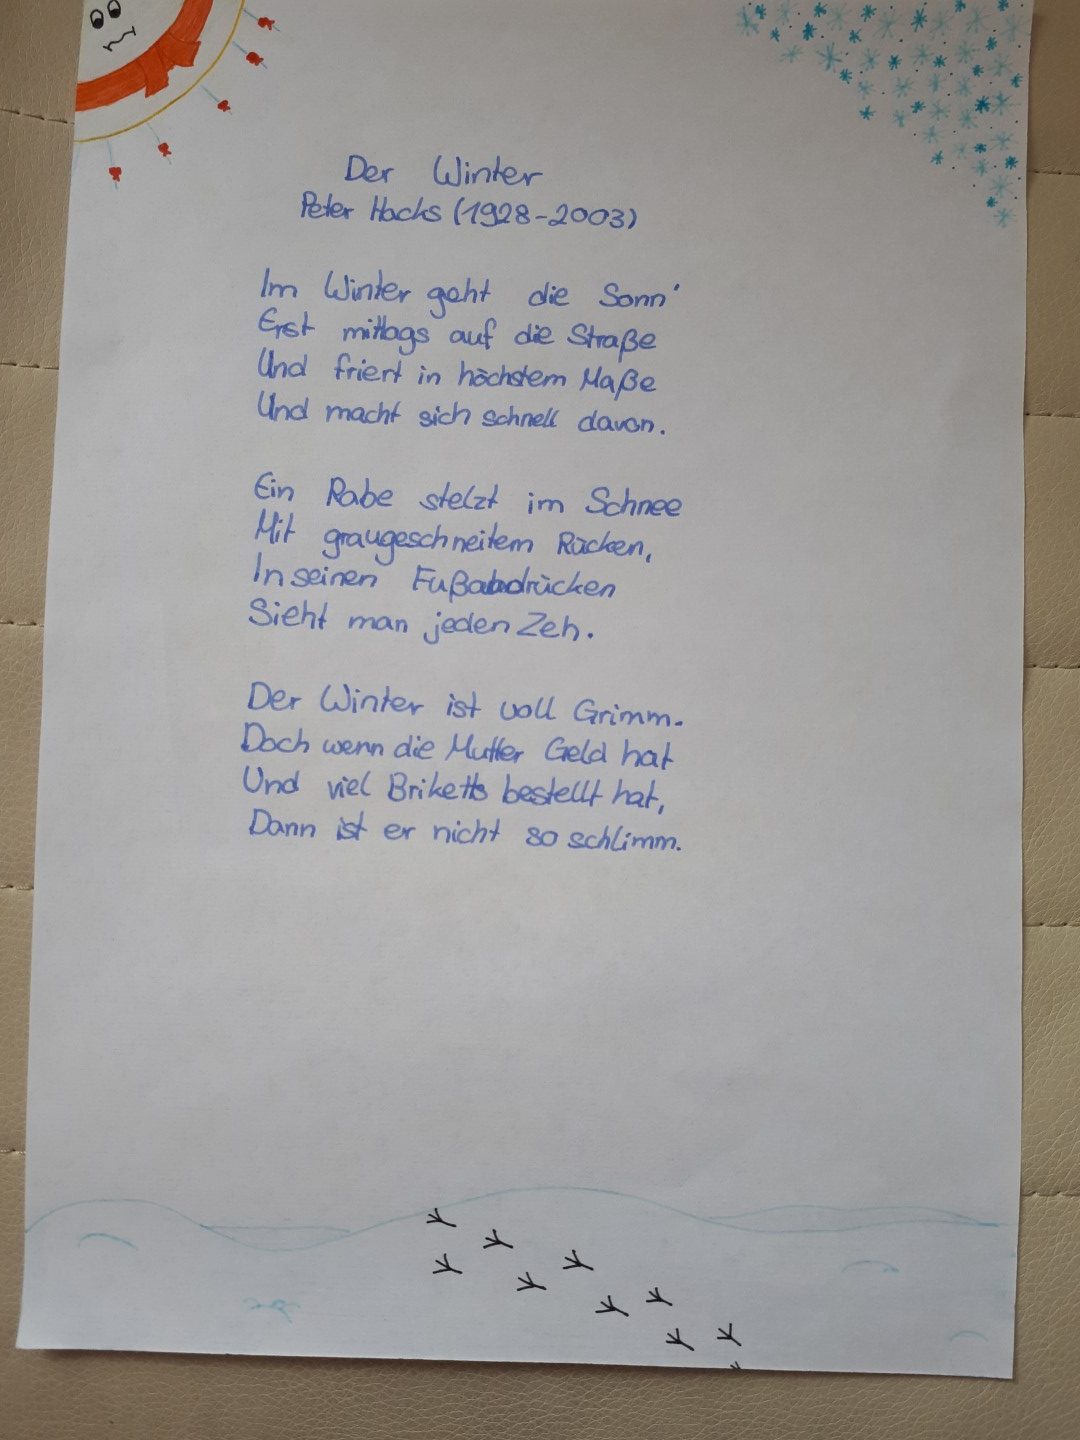 Der Winter
Peter Hacks (1928-2003)
Im Winter geht die Sonn'
Erst mittags auf die Straße
Und friert in höchstem Maße
Und macht sich schnell davon.
Ein Rabe stelzt im Schnee
Mit graugeschneitem Rücken,
In seinen Fußabdrücken
Sieht man jeden Zeh.
Der Winter ist voll Grimm.
Doch wenn die Mutter Geld hat
Und viel Briketts bestellt hat,
Dann ist er nicht so schlimm.